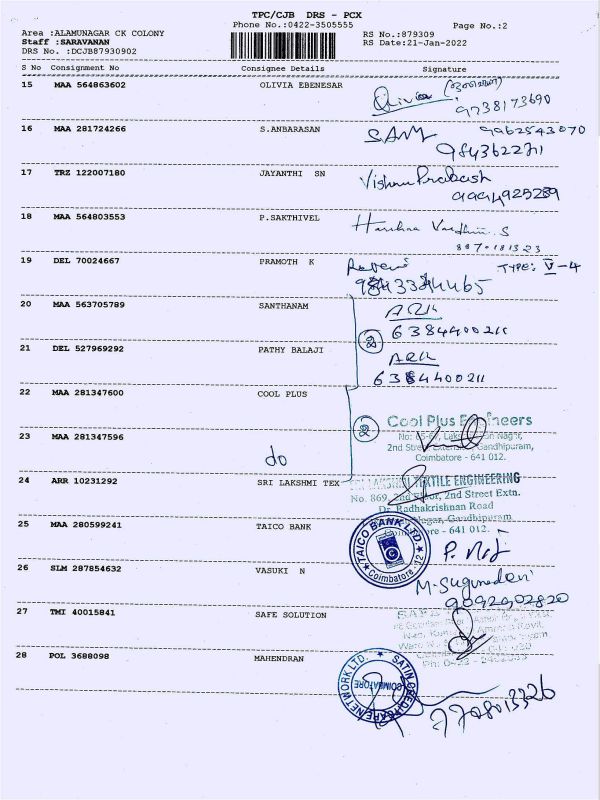 TPC/CJB DRS - PCX
Phone No.:0422-3505555 Page No.:2
Area :ALAMUNAGAR CK COLONY RS No.:879309
Staff :SARAVANAN RS Date:21-Jan-2022
DRS No. :DCJB87930902
S No Consignment No Consignee Details Signature
15 MAA 564863602 OLIVIA EBENESAR Olivia
9738173690
16 MAA 281724266 S.ANBARASAN SAM 9962543070
9843622711
17 TRZ 122007180 JAYANTHI SN Vishnu Prakash
9994925289
18 MAA 564803553 P.SAKTHIVEL
19 DEL 70024667 PRAMOTH K TYPE: V-4
20 MAA 563705789 SANTHANAM ARK
6384400211
2
21 DEL 527969292 PATHY BALAJI ARK
6384400211
22 MAA 281347600 COOL PLUS
2 Cool Plus Engineers
23 MAA 281347596 do 2nd Street Extension, Gandhipuram,
Coimbatore - 641 012.
24 ARR 10231292 SRI LAKSHMI TEX SRI LAKSHMI TEXTILE ENGINEERING
No. 869, 2nd Floor, 2nd Street Extn.
Dr. Radhakrishnan Road
Nagar, Gandhipuram
- 641 012.
25 MAA 280599241 TAICO BANK TAICO BANK LTD. Coimbatore - 12
26 SLM 287854632 VASUKI N M. Sugunadevi
9092902820
27 TMI 40015841 SAFE SOLUTION
28 POL 3688098 MAHENDRAN SATIN CREDITCARE NETWORK LTD.
COIMBATORE